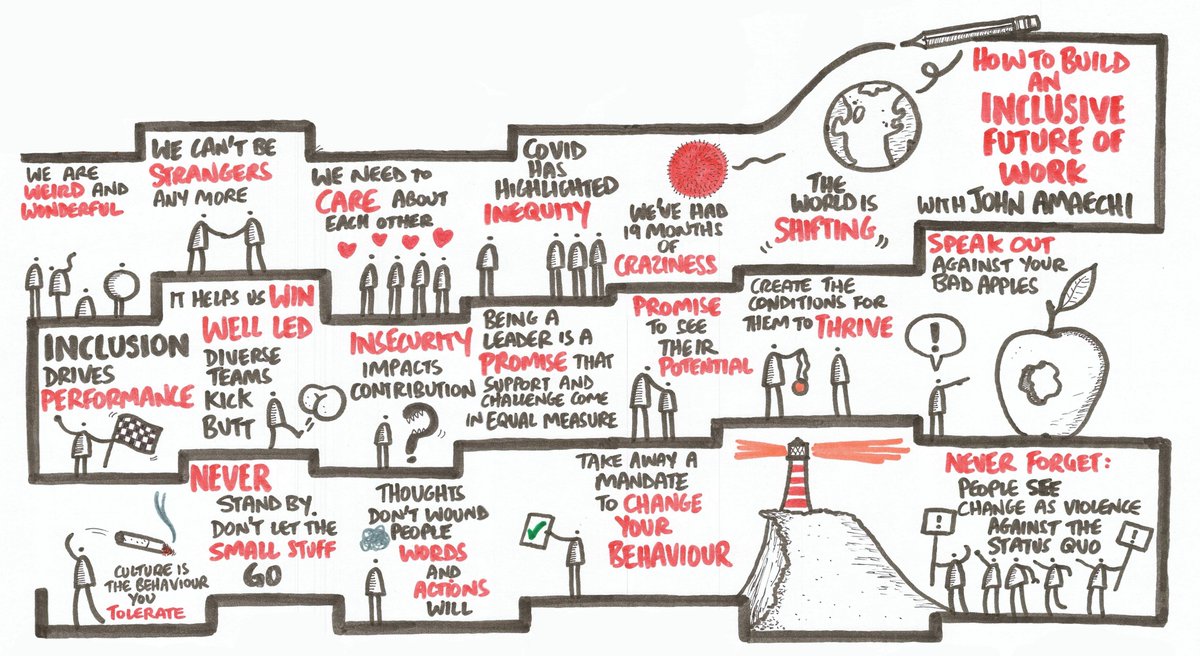 HOW TO BUILD
AN
INCLUSIVE
FUTURE OF
WORK
WITH JOHN AMAECHI
THE
WORLD IS
SHIFTING
WE'VE HAD
19 MONTHS
OF
CRAZINESS
COVID
HAS
HIGHLIGHTED
INEQUITY
WE NEED TO
CARE ABOUT
EACH OTHER
WE CAN'T BE
STRANGERS
ANY MORE
WE ARE
WEIRD AND
WONDERFUL
INCLUSION
DRIVES
PERFORMANCE
IT HELPS US WIN
WELL LED
DIVERSE
TEAMS
KICK
BUTT
INSECURITY
IMPACTS
CONTRIBUTION
?
BEING A
LEADER IS A
PROMISE THAT
SUPPORT AND
CHALLENGE COME
IN EQUAL MEASURE
PROMISE
TO SEE
THEIR
POTENTIAL
CREATE THE
CONDITIONS FOR
THEM TO THRIVE
SPEAK OUT
AGAINST YOUR
BAD APPLES
!
NEVER FORGET:
PEOPLE SEE
CHANGE AS VIOLENCE
AGAINST THE
STATUS QUO
!
!
TAKE AWAY A
MANDATE
TO CHANGE
YOUR
BEHAVIOUR
THOUGHTS
DON'T WOUND
PEOPLE
WORDS
AND
ACTIONS
WILL
NEVER
STAND BY.
DON'T LET THE
SMALL STUFF
GO
CULTURE IS
THE BEHAVIOUR
YOU
TOLERATE